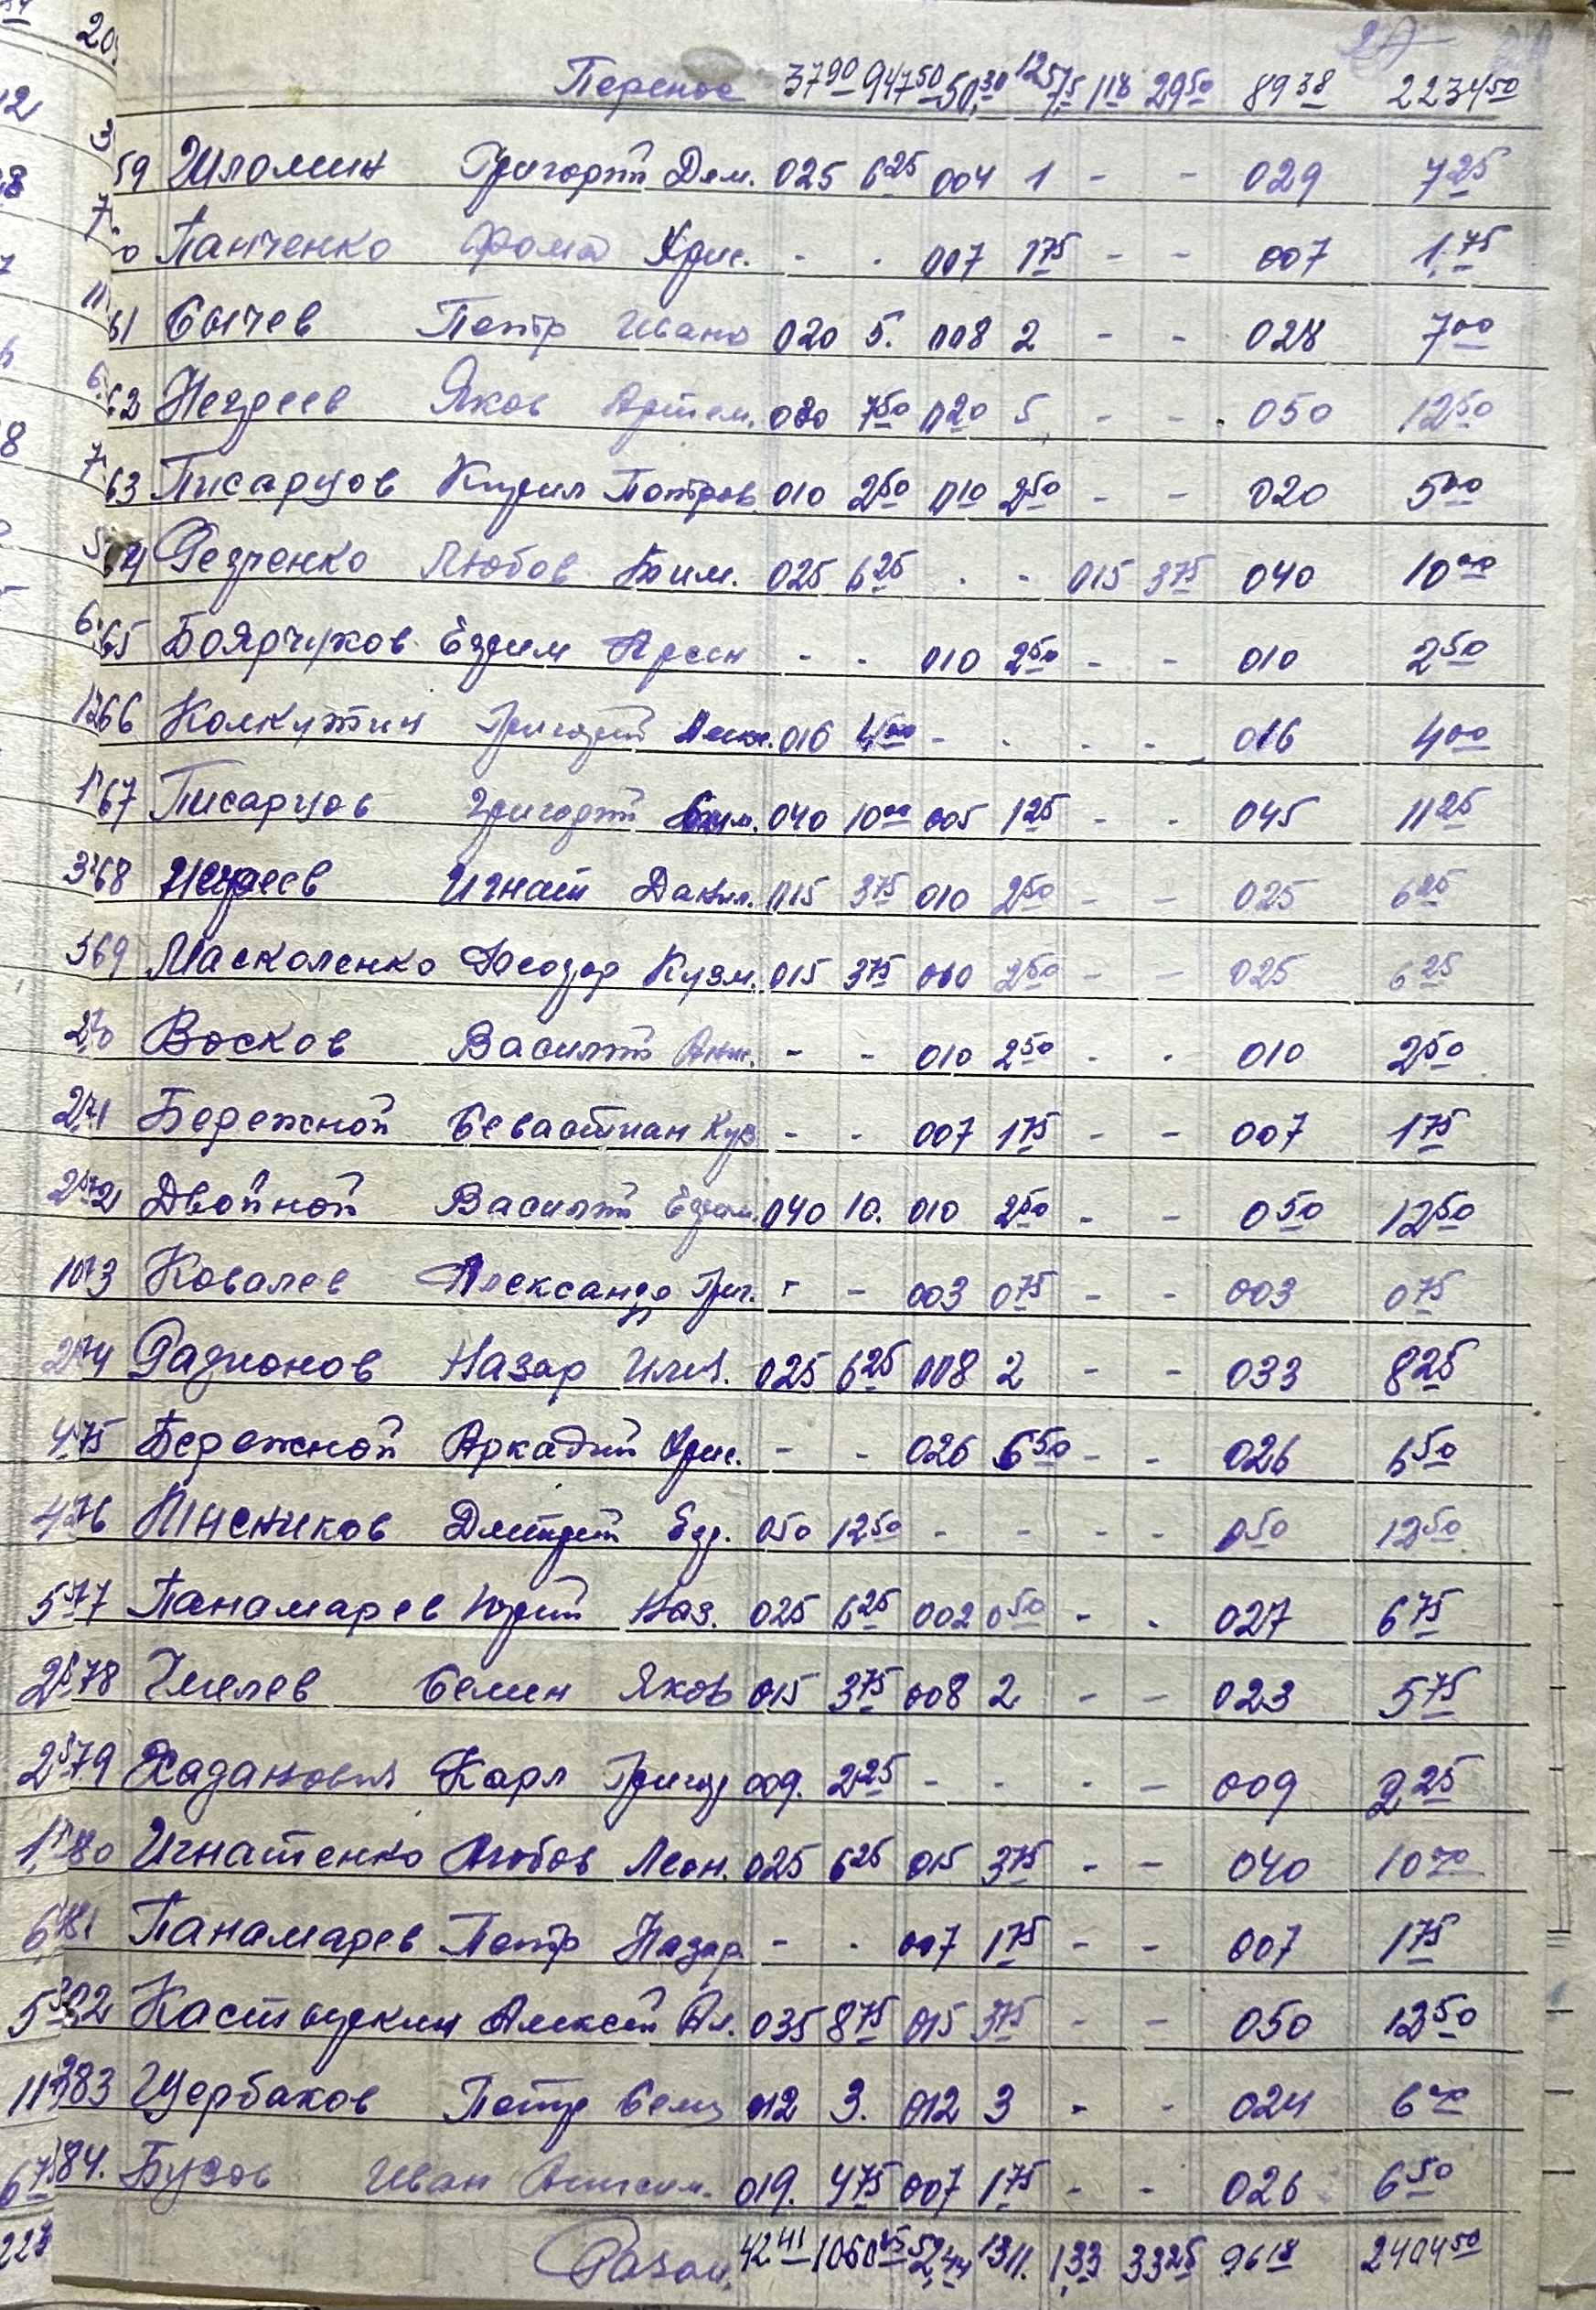 Перенос 37 90 947 50 50,30 1257,5 1 18 29 50 89 38 2234 50
59 Шломин Григорий Дем. 025 6 25 004 1 - - 029 7 25
Панченко Фома Хрис. - - 007 1 75 - - 007 1,75
61 Сычев Петр Ивано 020 5. 008 2 - - 028 7 00
62 Негреев Яков Артем. 030 7 50 020 5 - - 050 12 50
63 Писарцов Кирил Петров 010 2 50 010 2 50 - - 020 5 00
64 Федченко Любов 025 6 25 - - 015 3 75 040 10 00
65 Боярчуков Ефрем Арсен - - 010 2 50 - - 010 2 50
66 Колкутин Григорий Алек. 016 4 00 - - - - 016 4 00
67 Писарцов Григорий 040 10 00 005 1 25 - - 045 11 25
68 Негреев Игнат Данил. 015 3 75 010 2 50 - - 025 6 25
69 Масколенко Феодор Кузм. 015 3 75 010 2 50 - - 025 6 25
70 Восков Василий - - 010 2 50 - - 010 2 50
71 Бережной Севастиан Куз - - 007 1 75 - - 007 1 75
72 Двойной Василий 040 10. 010 2 50 - - 0 50 12 50
73 Ковалев Александр Григ. - - 003 0 75 - - 003 0 75
74 Радионов Назар Илия. 025 6 25 008 2 - - 033 8 25
75 Бережной Аркадий Хрис. - - 026 6 50 - - 026 6 50
76 Дмитрий Ефр. 050 12 50 - - - - 0 50 12 50
77 Панамарев Юрий Наз. 025 6 25 002 0 50 - - 027 6 75
78 Чмелев Семен Яков 015 3 75 008 2 - - 023 5 75
79 Хаданович Карл Григор 009. 2 25 - - - - 009 2 25
80 Игнатенко Любов Леон. 025 6 25 015 3 75 - - 040 10 00
81 Панамарев Петр Назар - - 007 1 75 - - 007 1 75
82 Кастыркин Алексей Ал. 035 8 75 015 3 75 - - 050 12 50
83 Щербаков Петр Семе 012 3. 012 3 - - 024 6 00
84. Бузов Иван Анисим. 019. 4 75 007 1 75 - - 026 6 50
42 41 1060 25 52,44 1311. 1,33 33 25 96 18 2404 50